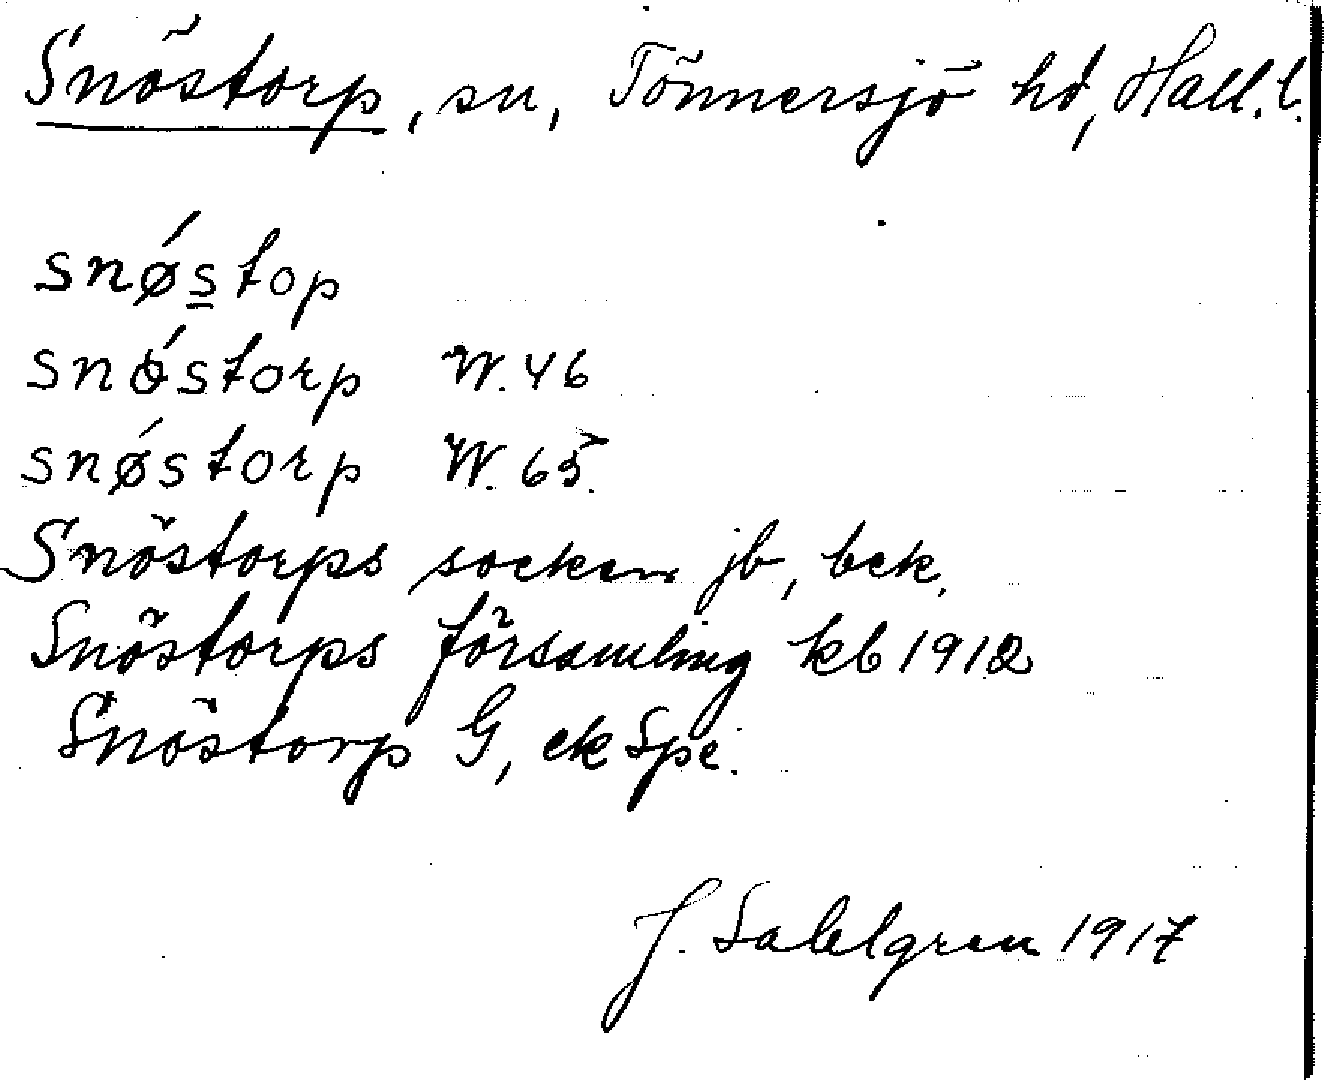 Snöstorp, sn, Tönnersjö hd, Hall. l.
snǿstop
snǿstorp W. 46
snǿstorp W. 65.
Snöstorps socken jb, bek.
Snöstorps församling kb 1912
Snöstorp G, ek Spe.
J. Sahlgren 1917